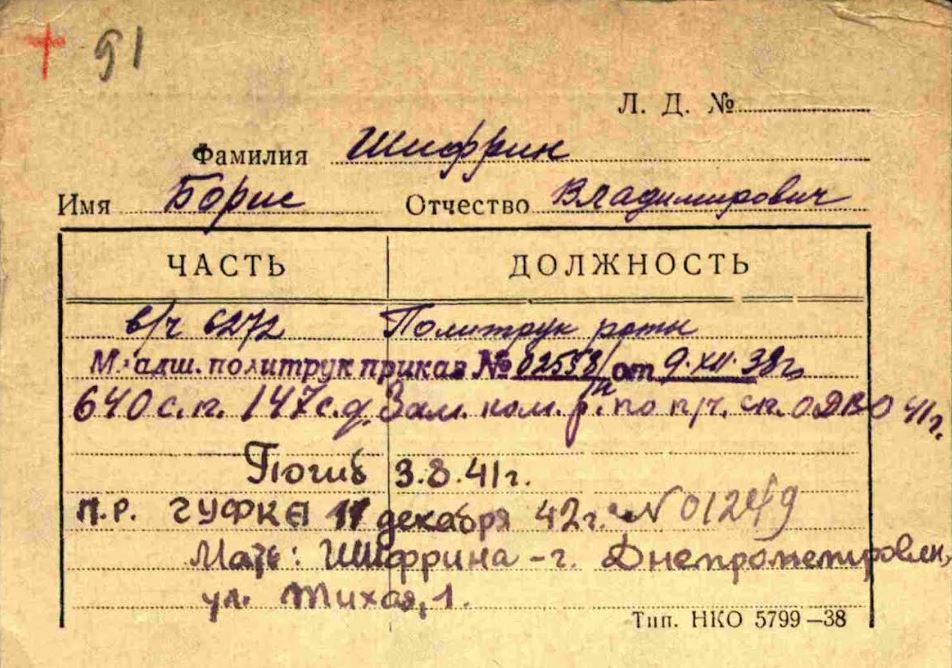 91
Л. Д. №
Фамилия Шифрин
Имя Борис Отчество Владимирович
ЧАСТЬ ДОЛЖНОСТЬ
в/ч 6272 Политрук роты
Младш. политрук приказ № 02558/п от 9.XII.38г.
640 с.п. 147 с.д. Зам. ком. р. по п/ч. сп. ОДВО 41г.
Погиб 3.8.41г.
П.Р. ГУФКА 11 декабря 42г. №01249
Мать: Шифрина - г. Днепропетровск,
ул. Тихая, 1.
Тип. НКО 5799—38